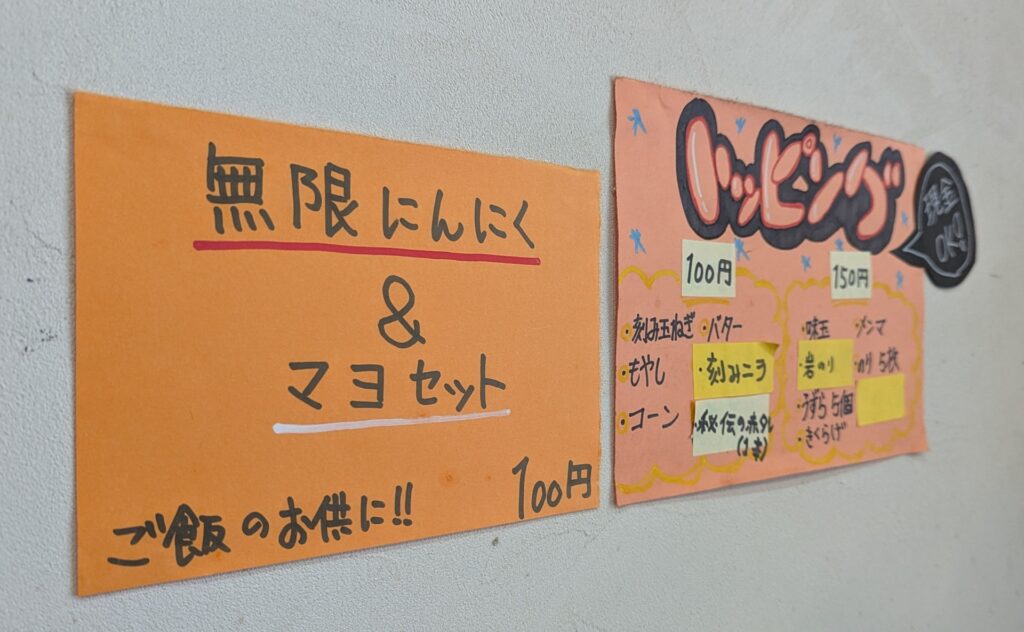 無限にんにく
&
マヨセット
ご飯のお供に!!
100円
トッピング
現金
OK!
100円
・刻み玉ねぎ ・バター
・もやし ・刻みニラ
・コーン ・秘伝の赤タレ
(1本)
150円
・味玉 ・メンマ
・岩のり ・のり5枚
・うずら5個
・きくらげ